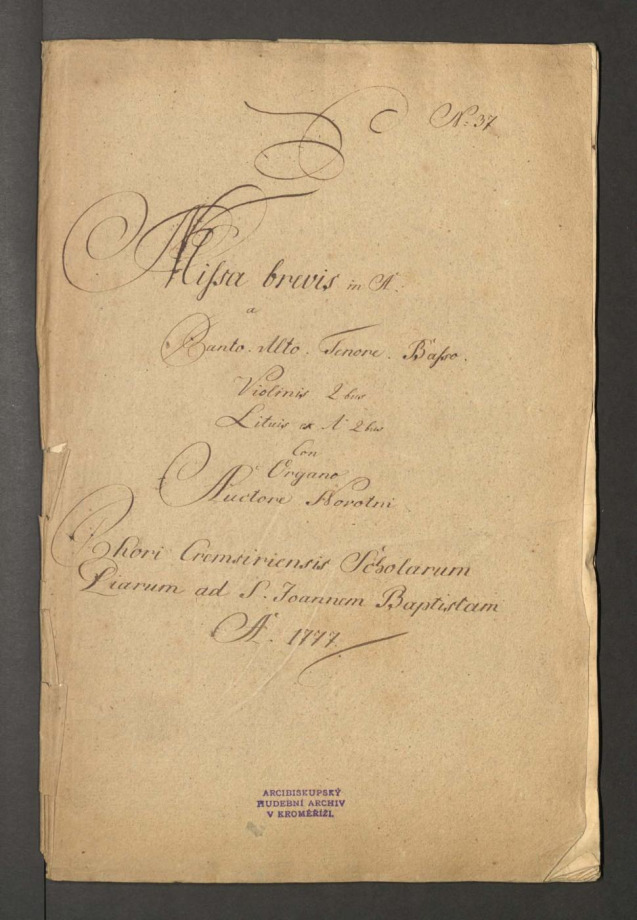 No: 37
Missa brevis in A.
a
Canto. Alto. Tenore. Basso.
Violinis 2bus
Lituis ex A 2bus
Con
Organo
Auctore Korotni
Chori Cremsiriensis Scholarum
Piarum ad S. Joannem Baptistam
A. 1777.
ARCIBISKUPSKÝ
HUDEBNÍ ARCHIV
V KROMĚŘÍŽI.